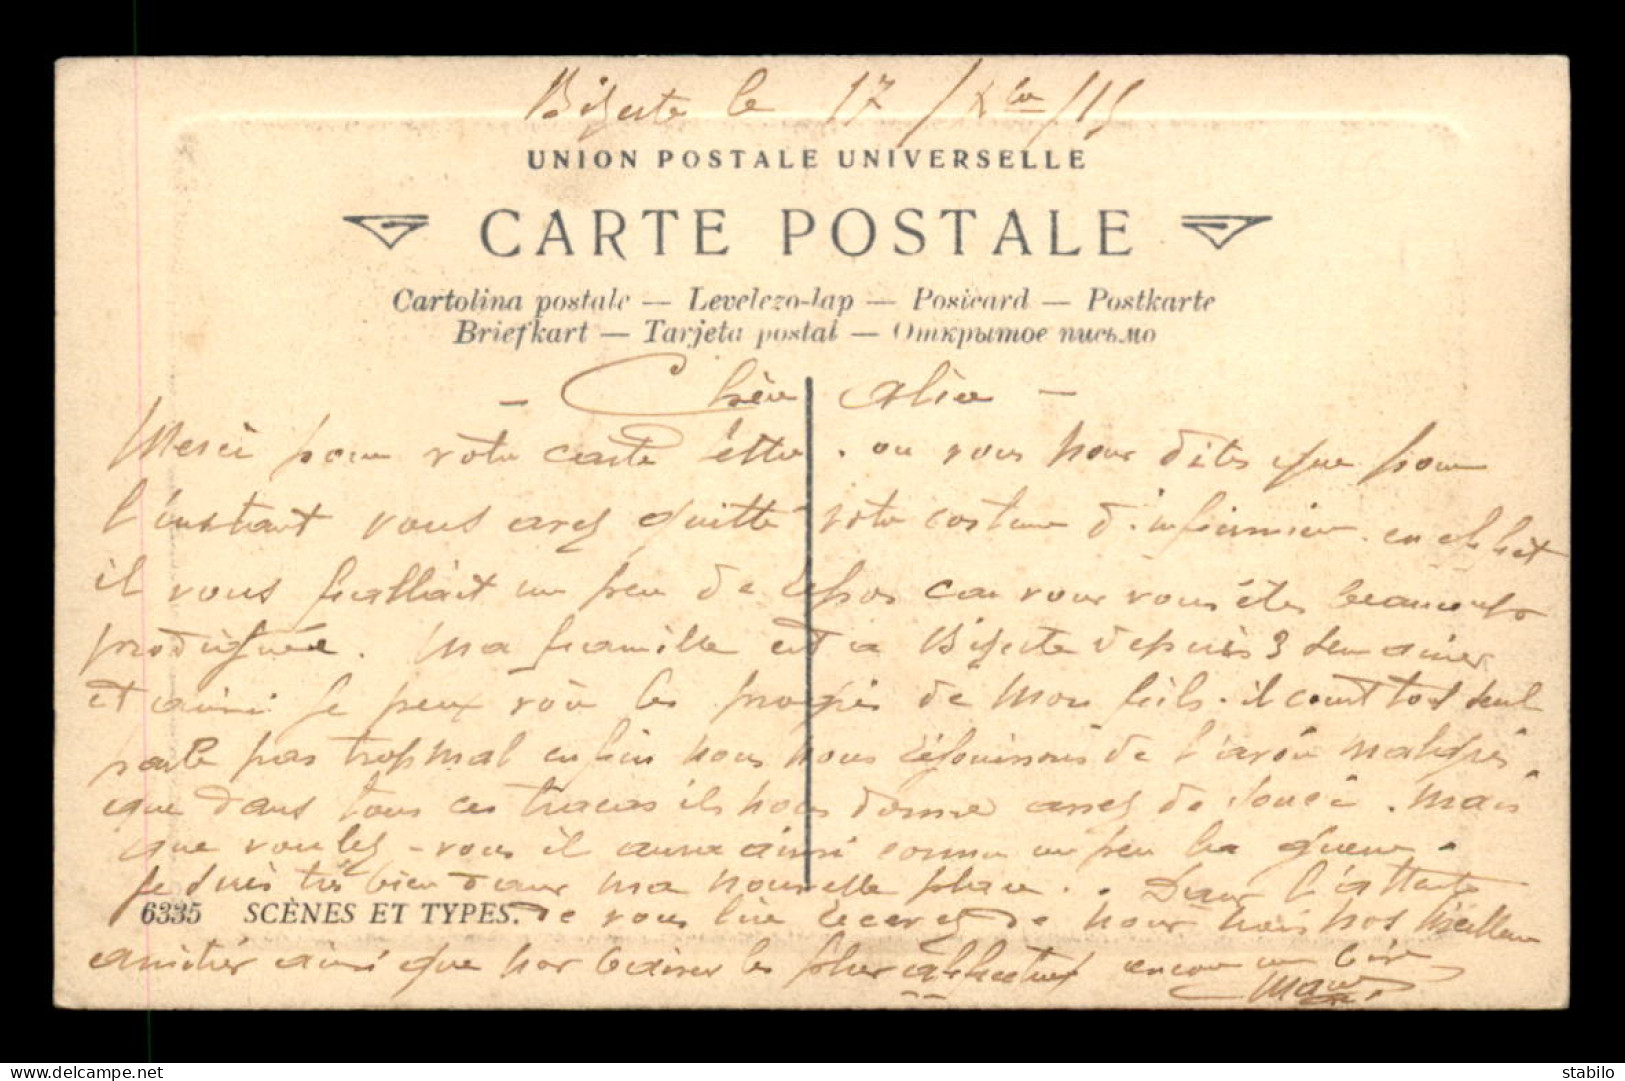 Bizerte le 17 / Xbre / 15
UNION POSTALE UNIVERSELLE
CARTE POSTALE
Cartolina postale — Levelezo-lap — Postcard — Postkarte
Briefkart — Tarjeta postal — Открытое письмо
- Chère Alice -
Merci pour votre carte lettre. ou vous nous dites que pour
l'instant vous avez quitté votre costume d'infirmière. en effet
il vous fallait un peu de repos car vous vous êtes beaucoup
prodiguée. Ma famille est a Bizerte depuis 3 semaines
et ainsi je peux voir les progrès de mon fils. il court tout seul
parle pas trop mal enfin nous nous réjouissons de l'avoir malgré
que dans tous ces tracas ils nous donne assez de souci. Mais
que voulez-vous il aura ainsi connu un peu la guerre.
Je suis très bien dans ma nouvelle place.. Dans l'attente
6335 SCÈNES ET TYPES. de vous lire recevez de nous trois nos meilleures
amitiés ainsi que nos baisers les plus affectueux encore une bise